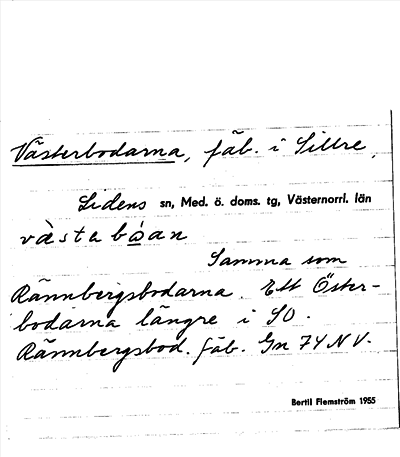 Västerbodarna, fäb. i Sillre,
Lidens sn, Med. ö. doms. tg, Västernorrl. län
våstabòan
Samma som
Rännbergsbodarna. Ett Öster-
bodarna längre i SO.
Rännbergsbod. fäb. Gn 74 NV.
Bertil Flemström 1955